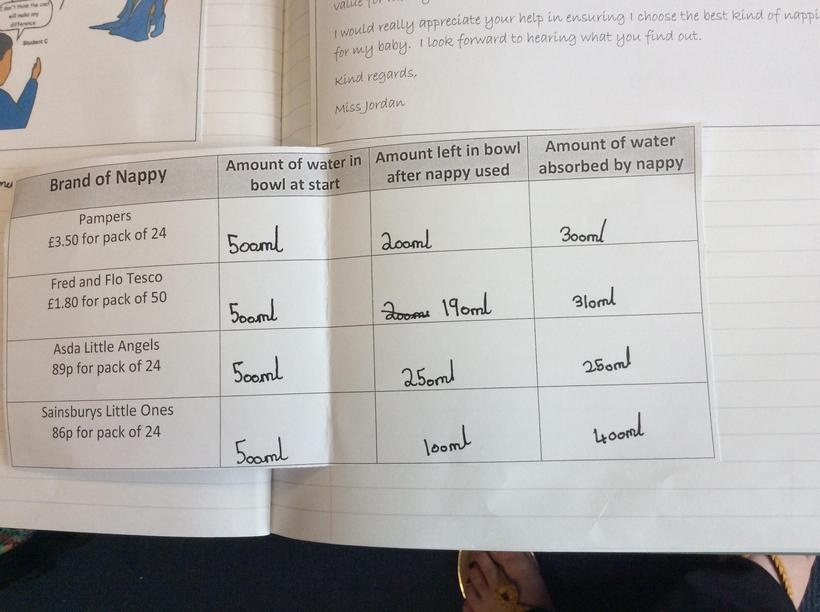 I don't think the cost
will make any
difference
Student C
value for
I would really appreciate your help in ensuring I choose the best kind of nappi
for my baby. I look forward to hearing what you find out.
Kind regards,
Miss Jordan
Brand of Nappy
Amount of water in
bowl at start
Amount left in bowl
after nappy used
Amount of water
absorbed by nappy
Pampers
£3.50 for pack of 24
500ml
200ml
300ml
Fred and Flo Tesco
£1.80 for pack of 50
500ml
190ml
310ml
Asda Little Angels
89p for pack of 24
500ml
250ml
250ml
Sainsburys Little Ones
86p for pack of 24
500ml
100ml
400ml